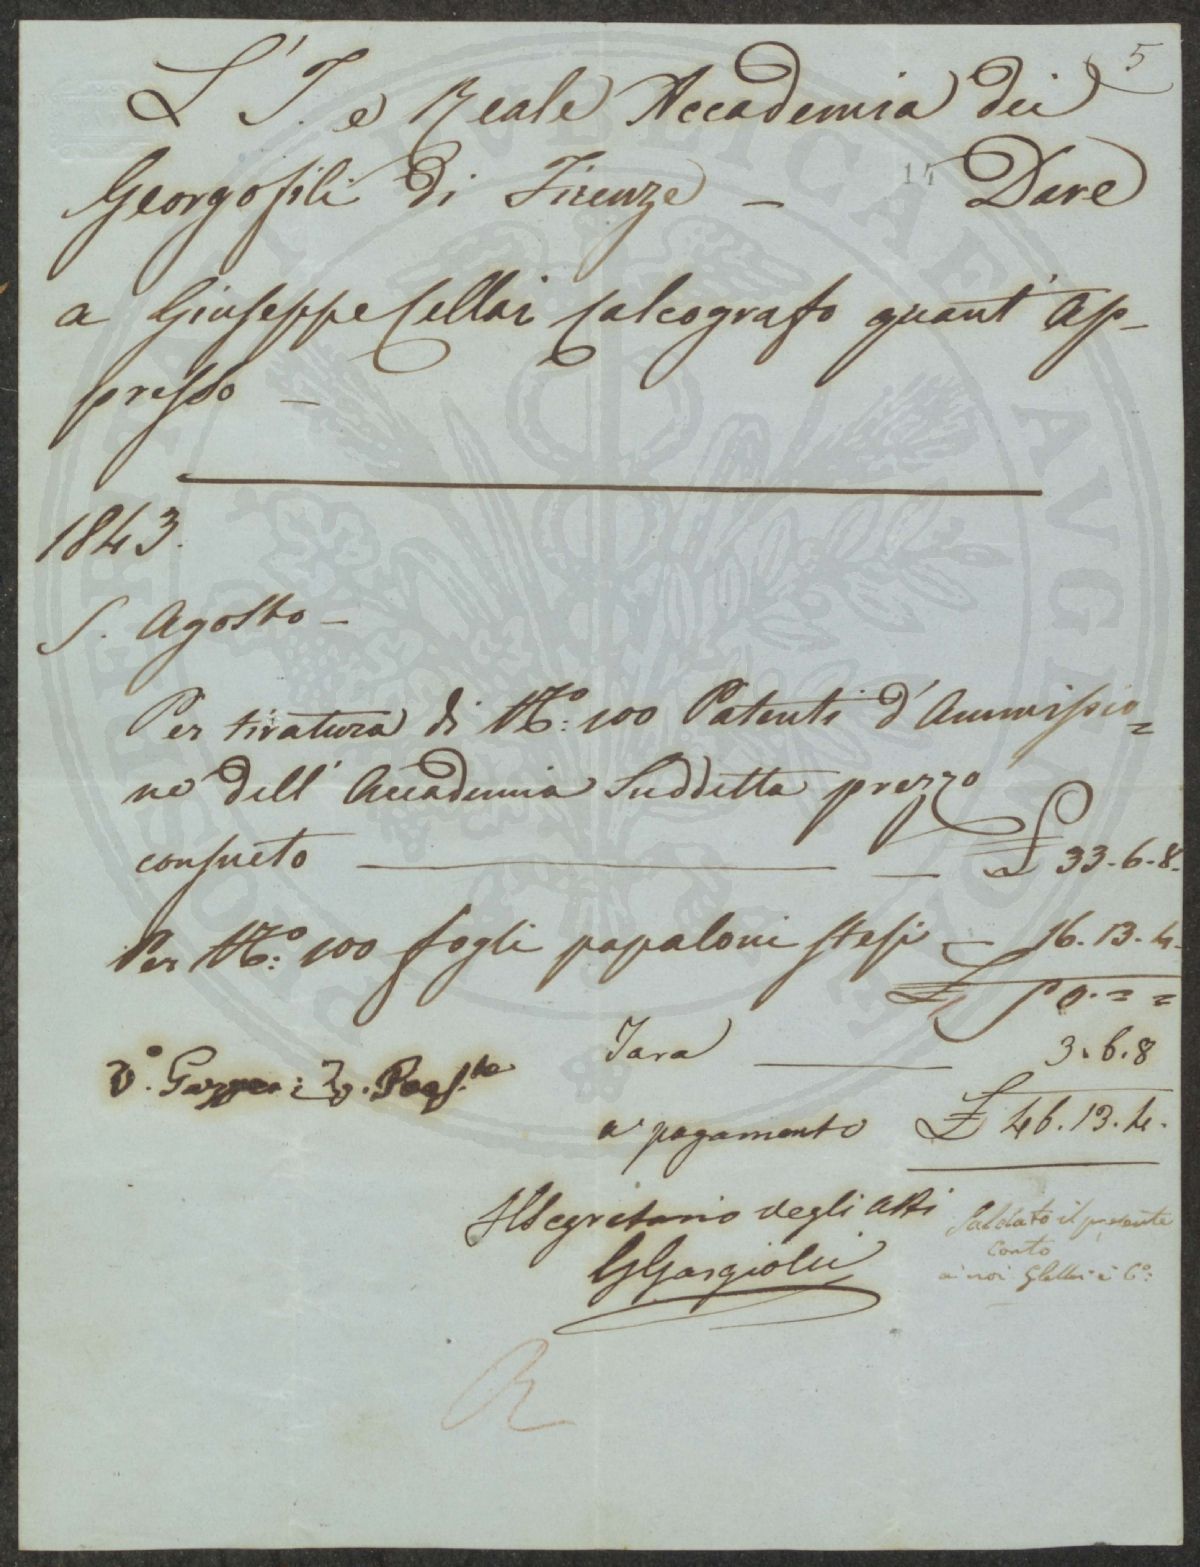 5
L'I. e Reale Accademia dei
Georgofili di Firenze — Dare
14
a Giuseppe Cellai Calcografo quant'ap-
presso —
1843.
5. Agosto —
Per tiratura di N.o: 100 Patenti d'Ammissio=
ne dell'Accademia Suddetta prezzo
consueto — £ 33-6-8-
Per N.o: 100 fogli papaloni stesi — 16.13.4-
£ 50.= =
Tara — 3.6.8
a pagamento £ 46.13.4.
V.o G. Gazzeri
Il Segretario degli Atti
G Gargiolli
Saldato il presente
Conto
a noi GCellai e C.o:
R
PVBLICAE AVGENDAE
PROSPERITATI